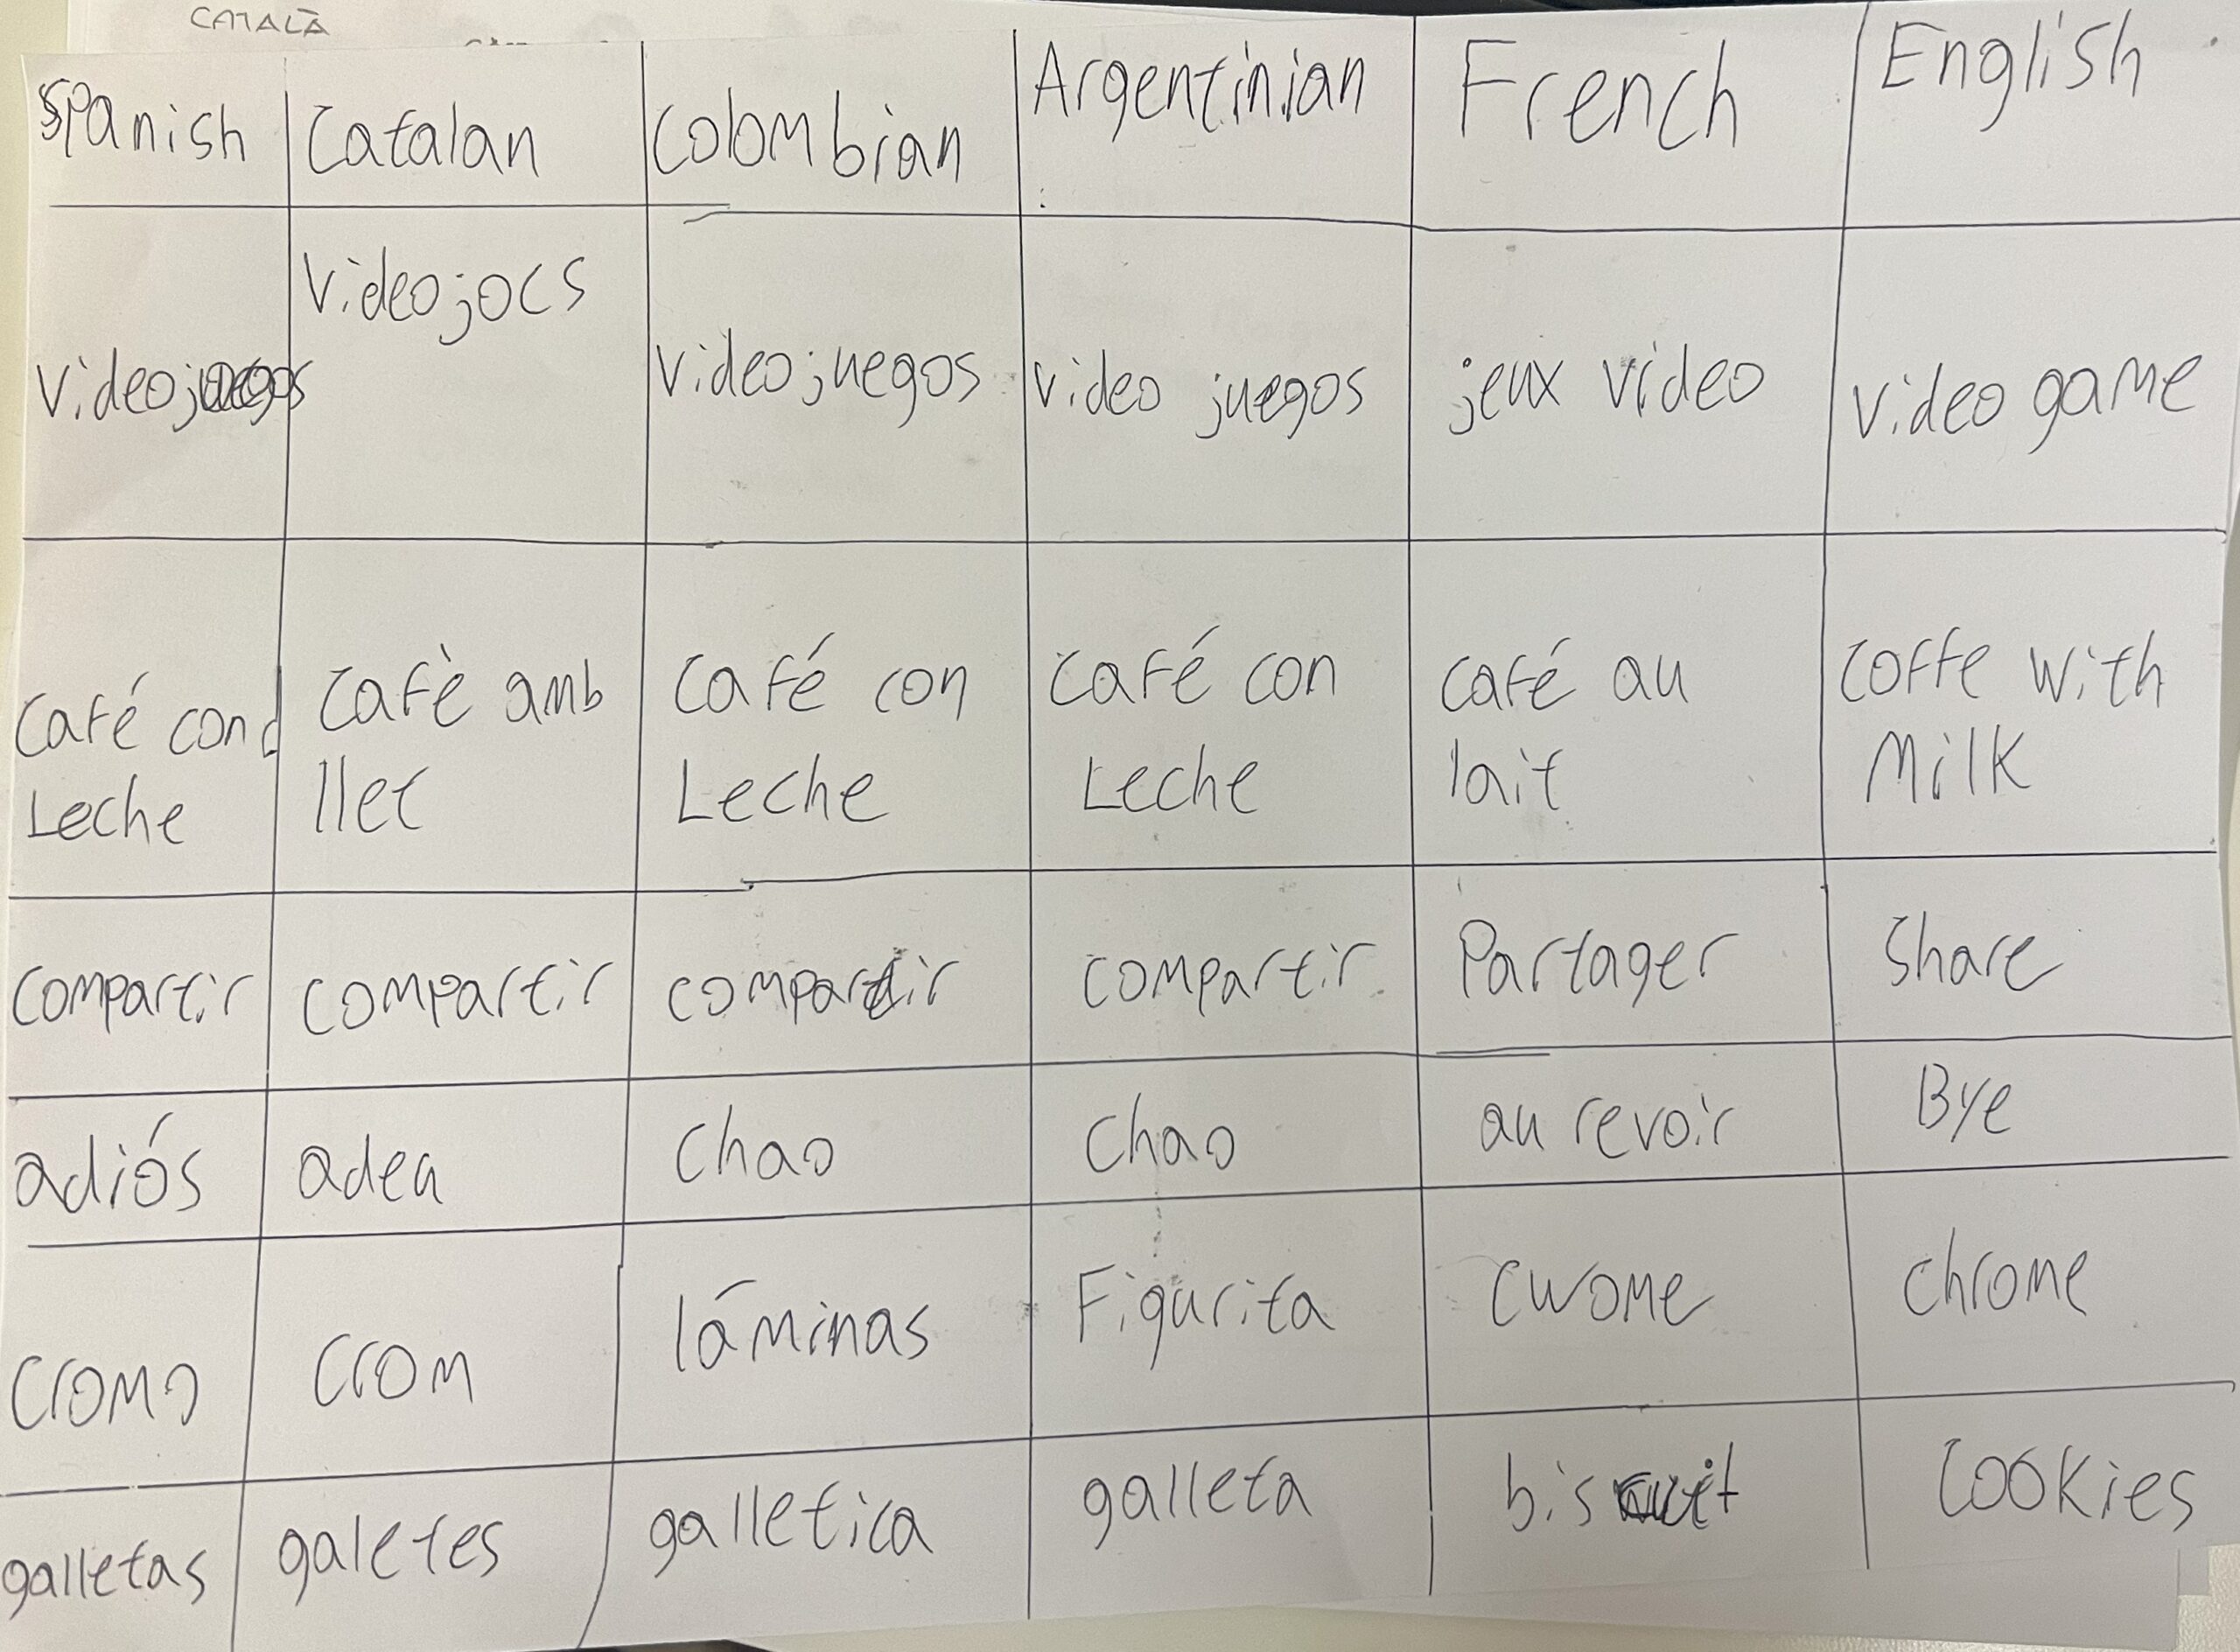 CATALÀ
Spanish Catalan Colombian Argentinian French English
Videojuegos Videojocs Videojuegos Video juegos jeux video Video game
Café con Cafè amb Café con Café con café au Coffe with
Leche llet Leche Leche lait Milk
compartir compartir compartir compartir Partager Share
adiós adeu Chao Chao au revoir Bye
cromo crom láminas Figurita cwome chrome
galletas galetes galletica galleta biscuit Cookies